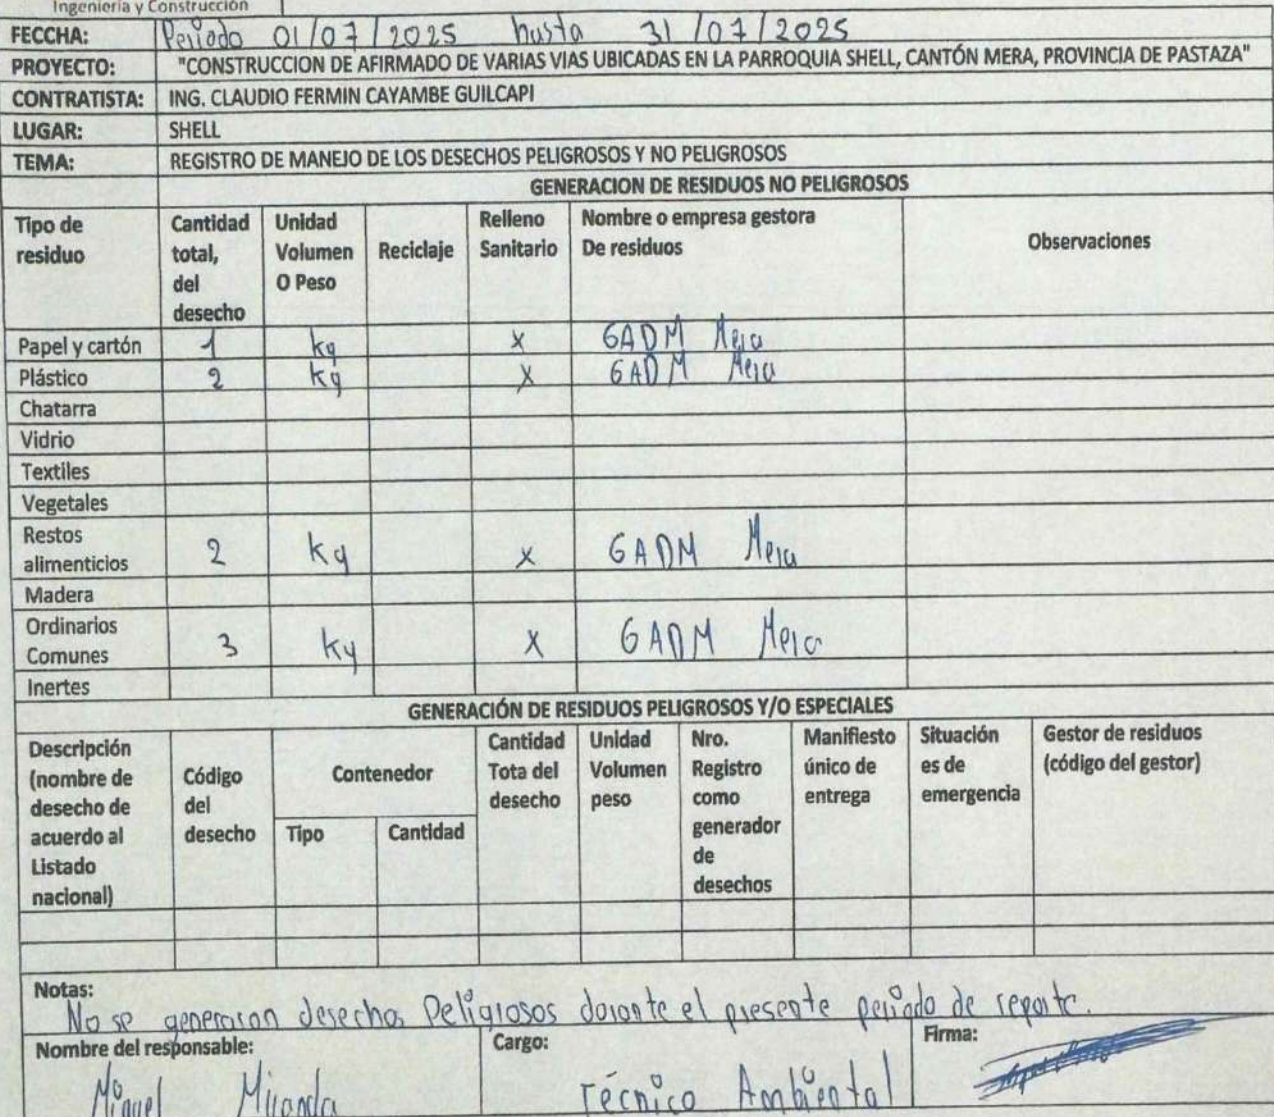 Ingeniería y Construcción
FECCHA: Periodo 01/07/2025 hasta 31/07/2025
PROYECTO: "CONSTRUCCION DE AFIRMADO DE VARIAS VIAS UBICADAS EN LA PARROQUIA SHELL, CANTÓN MERA, PROVINCIA DE PASTAZA"
CONTRATISTA: ING. CLAUDIO FERMIN CAYAMBE GUILCAPI
LUGAR: SHELL
TEMA: REGISTRO DE MANEJO DE LOS DESECHOS PELIGROSOS Y NO PELIGROSOS
GENERACION DE RESIDUOS NO PELIGROSOS
Tipo de residuo Cantidad total, del desecho Unidad Volumen O Peso Reciclaje Relleno Sanitario Nombre o empresa gestora De residuos Observaciones
Papel y cartón 1 kg x GADM Mera
Plástico 2 kg x GADM Mera
Chatarra
Vidrio
Textiles
Vegetales
Restos alimenticios 2 kg x GADM Mera
Madera
Ordinarios Comunes 3 kg x GADM Mera
Inertes
GENERACIÓN DE RESIDUOS PELIGROSOS Y/O ESPECIALES
Descripción (nombre de desecho de acuerdo al Listado nacional) Código del desecho Contenedor Tipo Cantidad Cantidad Tota del desecho Unidad Volumen peso Nro. Registro como generador de desechos Manifiesto único de entrega Situación es de emergencia Gestor de residuos (código del gestor)
Notas:
No se generaron desechos Peligrosos durante el presente periodo de reporte.
Nombre del responsable: Cargo: Firma:
Miguel Miranda Técnico Ambiental